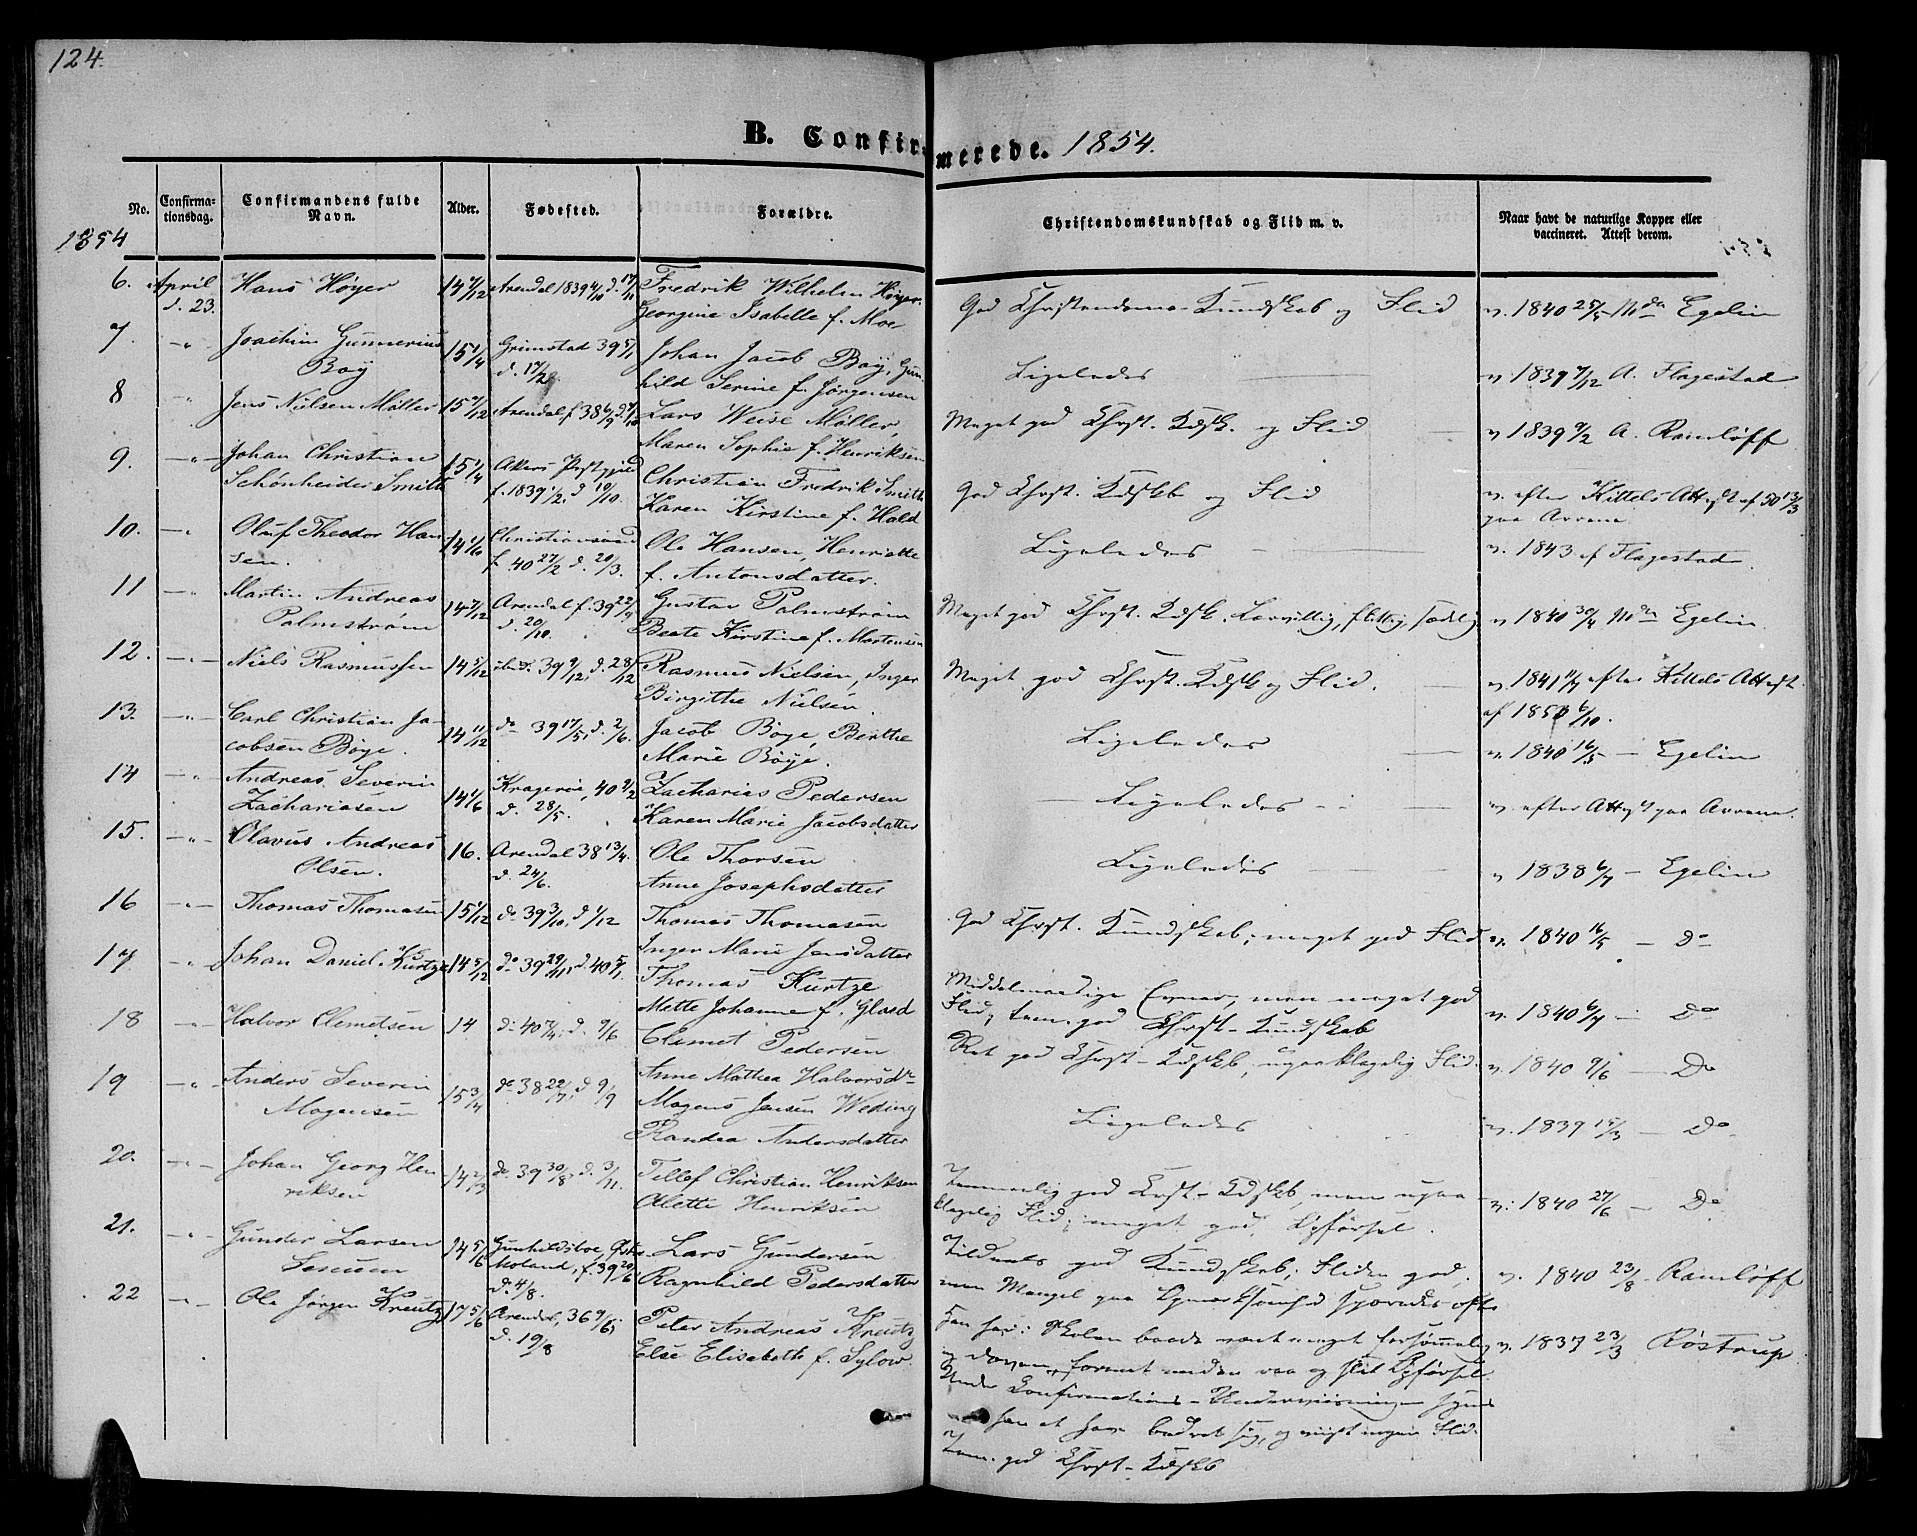 124.
B. Confirmerede. 1854.
No.
Confirmationsdag.
Confirmandens fulde Navn.
Alder.
Fødested.
Forældre.
Christendomskundskab og Flid m. v.
Naar havt de naturlige Kopper eller
vaccineret. Attest derom.
1854
6. April Hans Høyer 14 7/12 Arendal 1839 Fredrik Wilhelm Høyer
d. 23. Georgine Isabelle f. Moe
God Christendoms-Kundskab og Flid v. 1840 25/5 Egelin
7. -"- Joachim Gunnerius 15 1/4 Grimstad 39 5/1 Johan Jacob Boÿ, Gun
Boÿ d. 17/2. hild Serine f. Jørgensen
Ligeledes v. 1839 7/12 A. Flagestad
8 " Jens Nielsen Møller 15 7/12 Arendal, f. 38 6/9 Lars Weise Møller,
Maren Sophie f. Henriksen
Meget god Chrst. Kdsk. og Flid v. 1839 9/2 A. Ramløff
9. -"- Johan Christian 15 1/4 Akers Prstgjeld Christian Fredrik Smith
Schønheider Smith f. 1839 1/2. d. 10/10. Karen Kirstine f. Hald
God Chrst. Kdskb og Flid v. efter Kittels Attest af 50 13/3
paa Arrene
10. -"- Oluf Theodor Han 14 1/6 Christianssand Ole Hansen, Henriette
sen. f. 40 27/2 d. 20/3. f. Antonsdatter.
Ligeledes v. 1843 af Flagestad
11 -"- Martin Andreas 14 7/12 Arendal f. 39 22/9 Gustav Palmstrøm
Palmstrøm d. 20/10. Beate Kirstine f. Martensen
Meget god Chrst. Kdsk, Lærvillig, flittig, sædelig v. 1840 30/4 Egelin
12. -"- Niels Rasmussen 14 5/12 ibid. 39 9/12, d. 28/12 Rasmus Nielsen, Inger
Birgithe Nielsen.
Meget god Chrst. Kdsk og Flid. v. 1841 efter Kittels Attest
af 1850 6/10.
13. -"- Carl Christian Ja- 14 11/12 do 39 17/5, d. 2/6. Jacob Böye, Birthe
cobsen Böye. Marie Böÿe.
Ligeledes v. 1840 16/5 - Egelin
14 -"- Andreas Severin 14 1/6 Kragerøe, 40 9/2 Zacharias Pedersen
Zachariasen d. 28/5. Karen Marie Jacobsdatter
Ligeledes v. efter Attest paa Arrene.
15. -"- Olavus Andreas 16. Arendal 38 13/4. Ole Thorsen
Olsen. d. 24/6. Anne Josephsdatter
Ligeledes v. 1838 6/7 - Egelin
16 -"- Thomas Thomasen 15 1/12 do 39 3/10, d 1/12 Thomas Thomasen
Inger Marie Jensdatter
God Chrst. Kundskab, meget god Flid v. 1840 16/5 - Do
17 -"- Johan Daniel Kurtze 14 5/12 do 39 29/11, d. 40 5/1. Thomas Kurtze
Mette Johanne f. Glaed
Middelmaadige Evner, men meget god
Flid, tem. god Chrst-Kundskab v. 1840 6/7 - Do
18 " Halvor Clemetsen 14 do 40 7/4, d. 9/6 Clemet Pedersen
Anne Mathea Halvorsdr
Ret god Chrst-Kdskb, upaaklagelig Flid. v. 1840 9/6 - Do
19 -"- Anders Severin 15 3/4 do 38 22/7, d 9/9 Mogens Jensen Weding
Mogensen Randea Andersdatter
Ligeledes v. 1839 15/3 - Do
20. -"- Johan Georg Hen 14 2/3 do 39 30/8, d. 3/11. Tellef Christian Henriksen
riksen Alette Henriksen
Temmelig god Chrst-Kdskb, men upaa-
klagelig Flid, meget god Opførsel. v. 1840 27/6 - Do
21. -"- Gunder Larsen 14 5/6 Gunhildsboe, Østre Lars Gundersen
Moland, f. 39 20/6 Ragnhild Pedersdatter
d. 4/8.
Tildeels god Kundskab; Fliden god,
men Mangel paa spores ofte v. 1840 23/8 - Ramløff
22 -"- Ole Jørgen Kreutz 17 5/6 Arendal, 36 9/6; Peter Andreas Kreutz
d. 19/8 Else Elisabeth f. Sylow.
Han har i Skolen baade været meget forsømmelig v. 1837 23/3 Røstrup
og doven, og slet Opførsel.
Under Confirmations-Underviisningen synes
han at have bedret sig, og viist megen Flid.
Tem. god Chrst-Kdskb